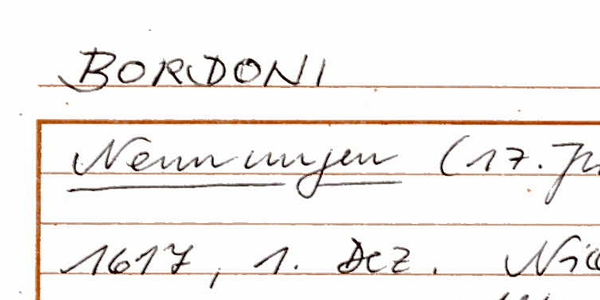 BORDONI
Nennungen (17. Jh
1617, 1. Dez. Nic